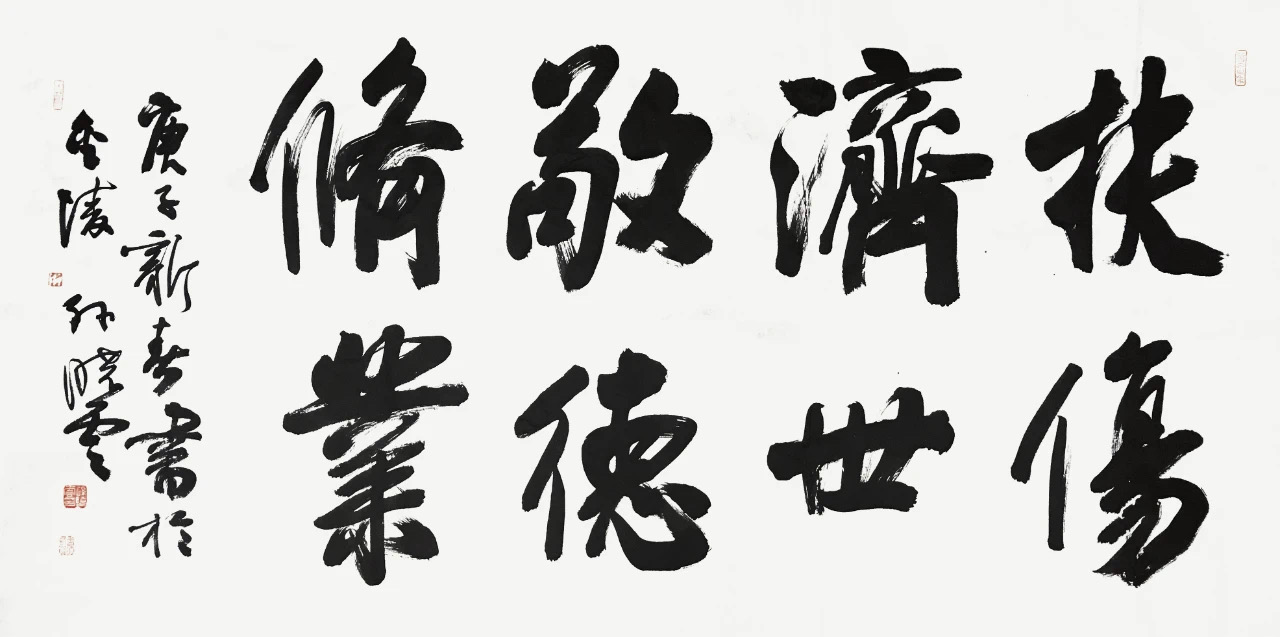 扶傷
濟世
敬德
脩業
庚子新春書於
金陵 孫曉雲